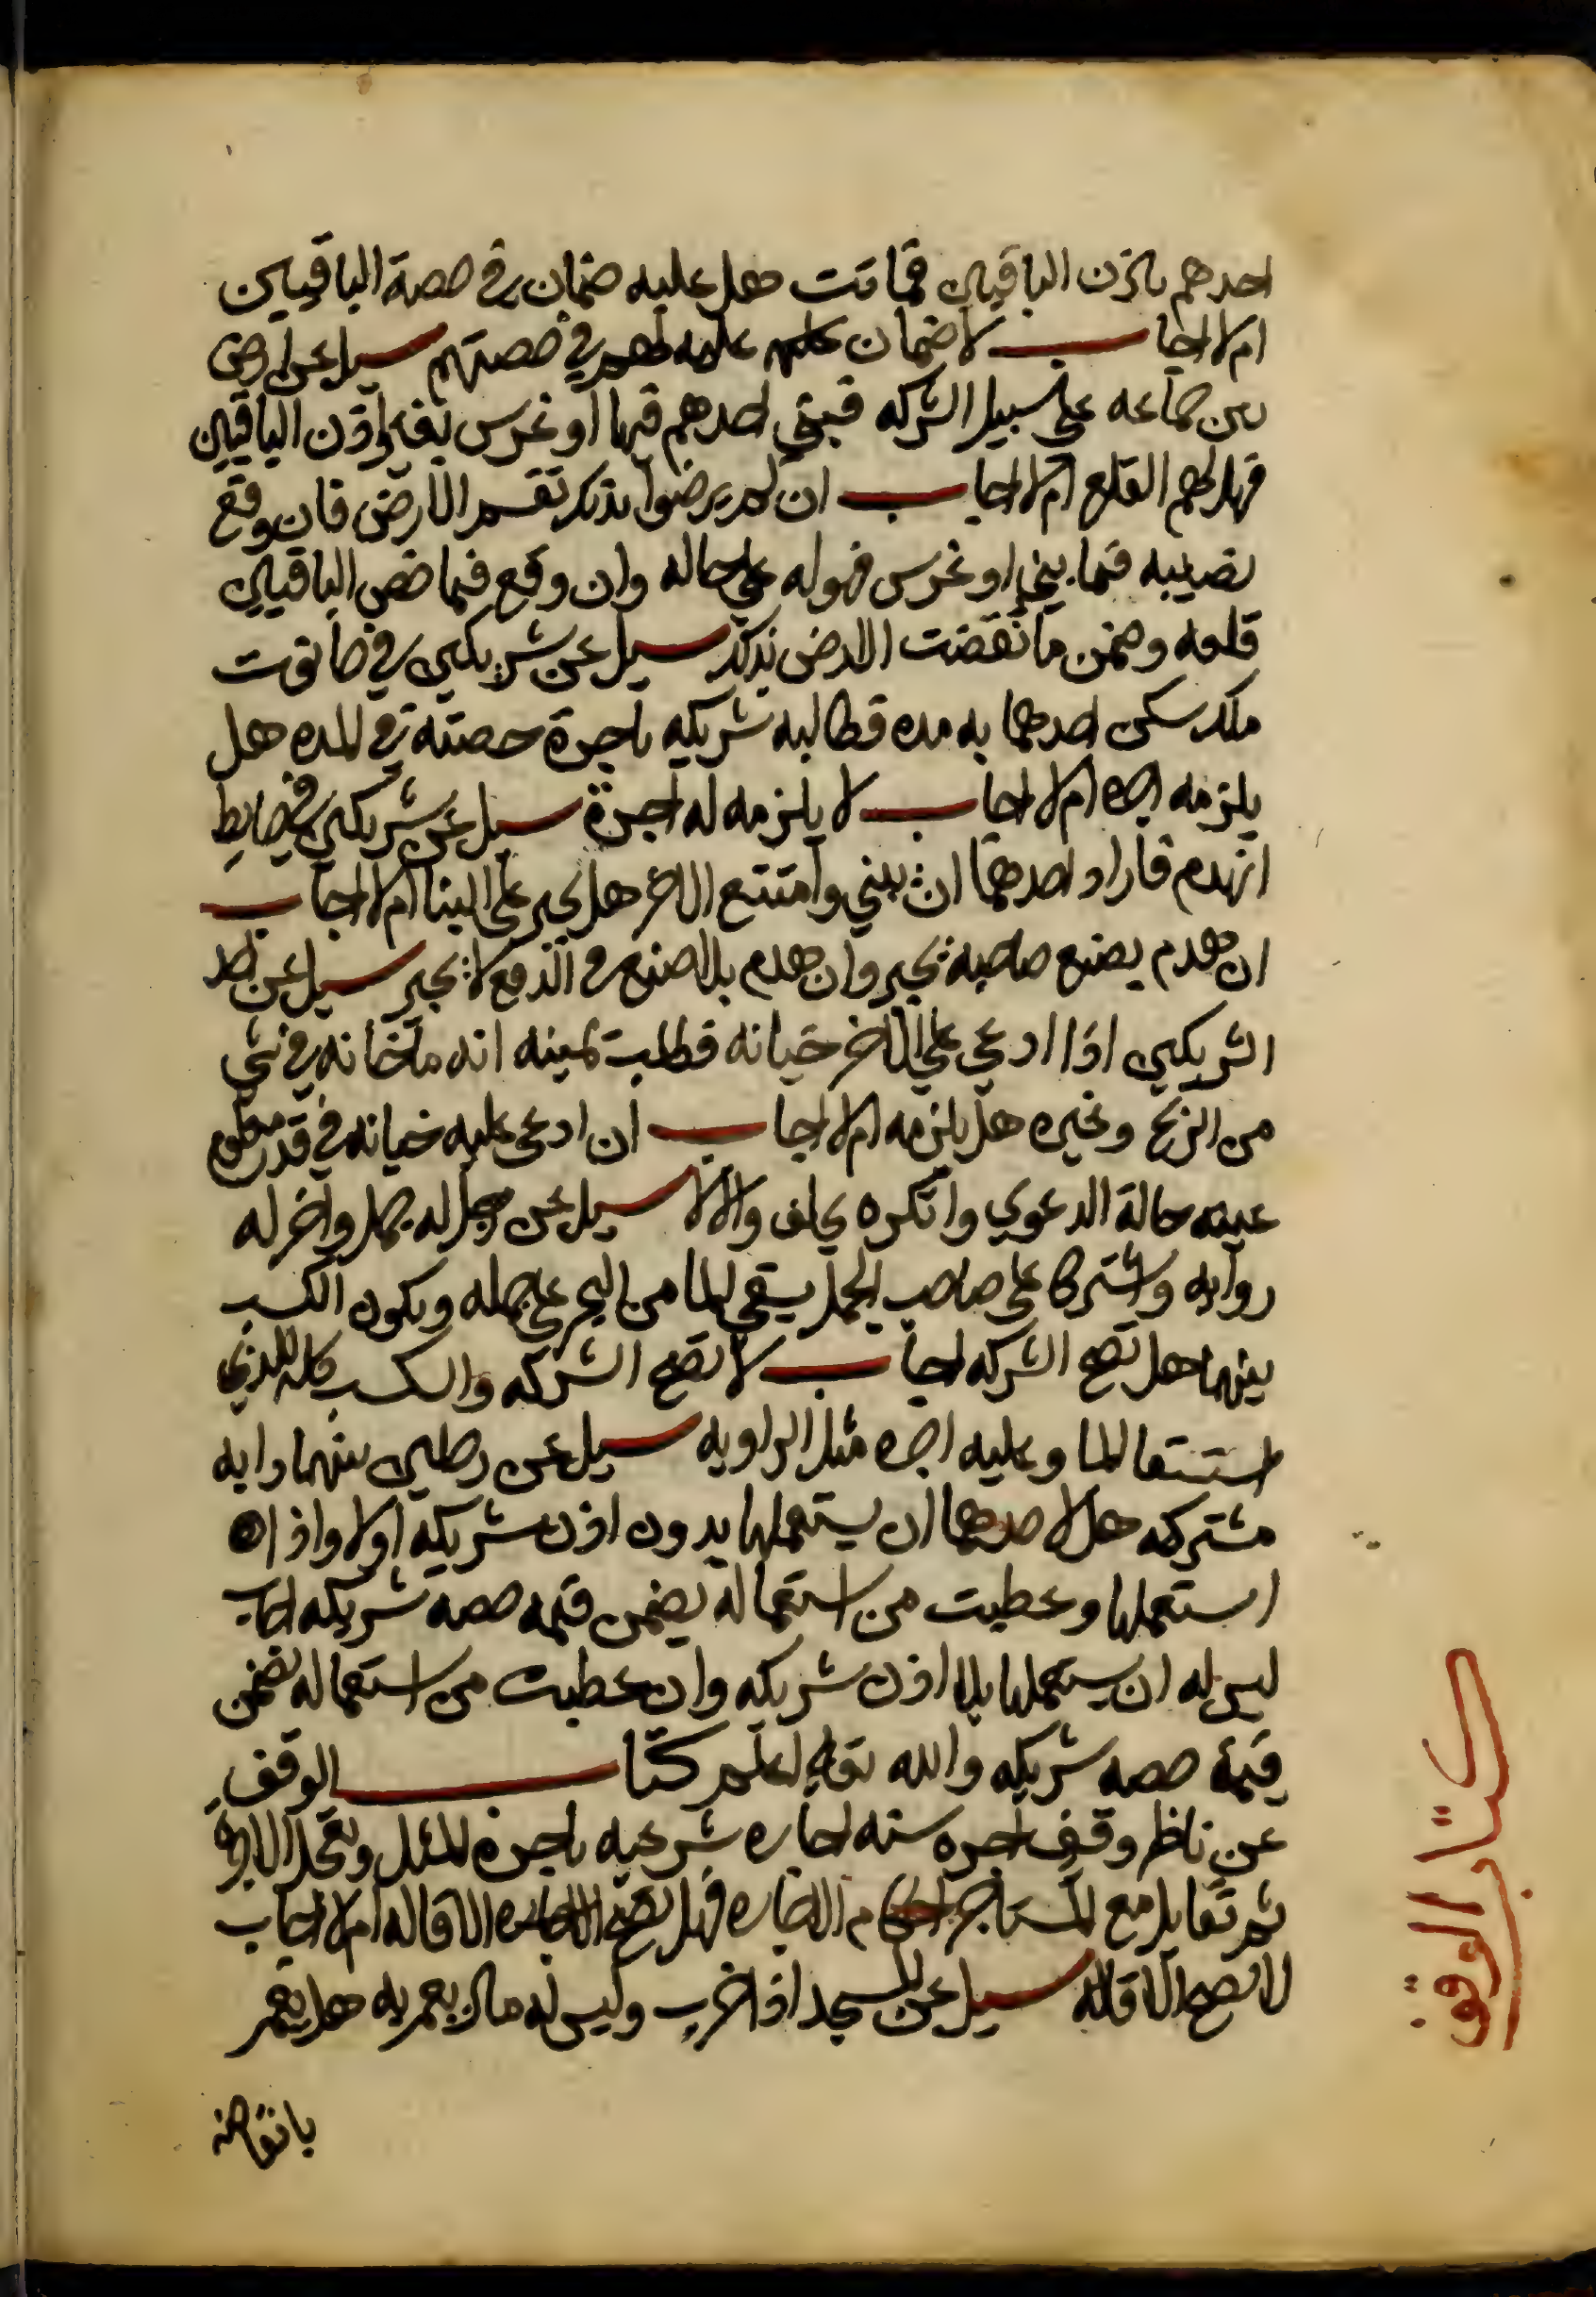 احدهم باذن الباقيين فماتت هل عليه ضمان في حصة الباقيين
ام لا اجاب لا ضمان عليه لهم في حصتهم سيل عن ارض
بين جماعه علي سبيل الشركه فبني احدهم فيها او غرس بغير اذن الباقيين
فهل لهم القلع ام لا اجاب ان لم يرضوا بذلك تقسم الارض فان وقع
نصيبه فيما بني او غرس فهو له علي حاله وان وقع فيما خص الباقيين
قلعه وضمن ما نقصت الارض بذلك سيل عن شريكين في حانوت
ملك سكن احدهما به مده فطالبه شريكه باجرة حصته في المده هل
يلزمه اجره ام لا اجاب لا يلزمه له اجرة سيل عن شريكين في حايط
انهدم فاراد احدهما ان يبني وامتنع الاخر هل يجبر علي البنا ام لا اجاب
ان هدم بصنع صاحبه يجبر وان هدم بلا صنع في الدفع لا يجبر سيل عن احد
الشريكين اذا ادعي علي الاخر خيانه فطلب يمينه انه ما خانه في شي
من الربح وغيره هل يلزمه ام لا اجاب ان ادعي عليه خيانه في قدر معلوم
عينه حالة الدعوي وانكره يحلف والا لا سيل عن رجل له جمل واخر له
روايه واشتركا علي صاحب الجمل يسقي الما من البحر علي جمله ويكون الكسب
بينهما هل تصح الشركه اجاب لا تصح الشركه والكسب كله للذي
استقا الما وعليه اجره مثل الراويه سيل عن رجلين بينهما دابه
مشتركه هل لاحدهما ان يستعملها بدون اذن شريكه اولا واذا
استعملها وعطبت من استعماله يضمن قيمه حصه شريكه اجاب
ليس له ان يستعملها بلا اذن شريكه وان عطبت من استعماله يضمن
قيمة حصه شريكه والله تعالي اعلم كتاب الوقف
عن ناظر وقف اجره سنه اجاره شرعيه باجرة المثل وتعجل الاجرة
ثم تقايل مع المستاجر احكام الاجاره فهل تصح الاقاله ام لا اجاب
لا تصح الاقاله سيل عن المسجد اذا خرب وليس له مال يعمر به هل يعمر
بانقاضه
كتاب الوقف